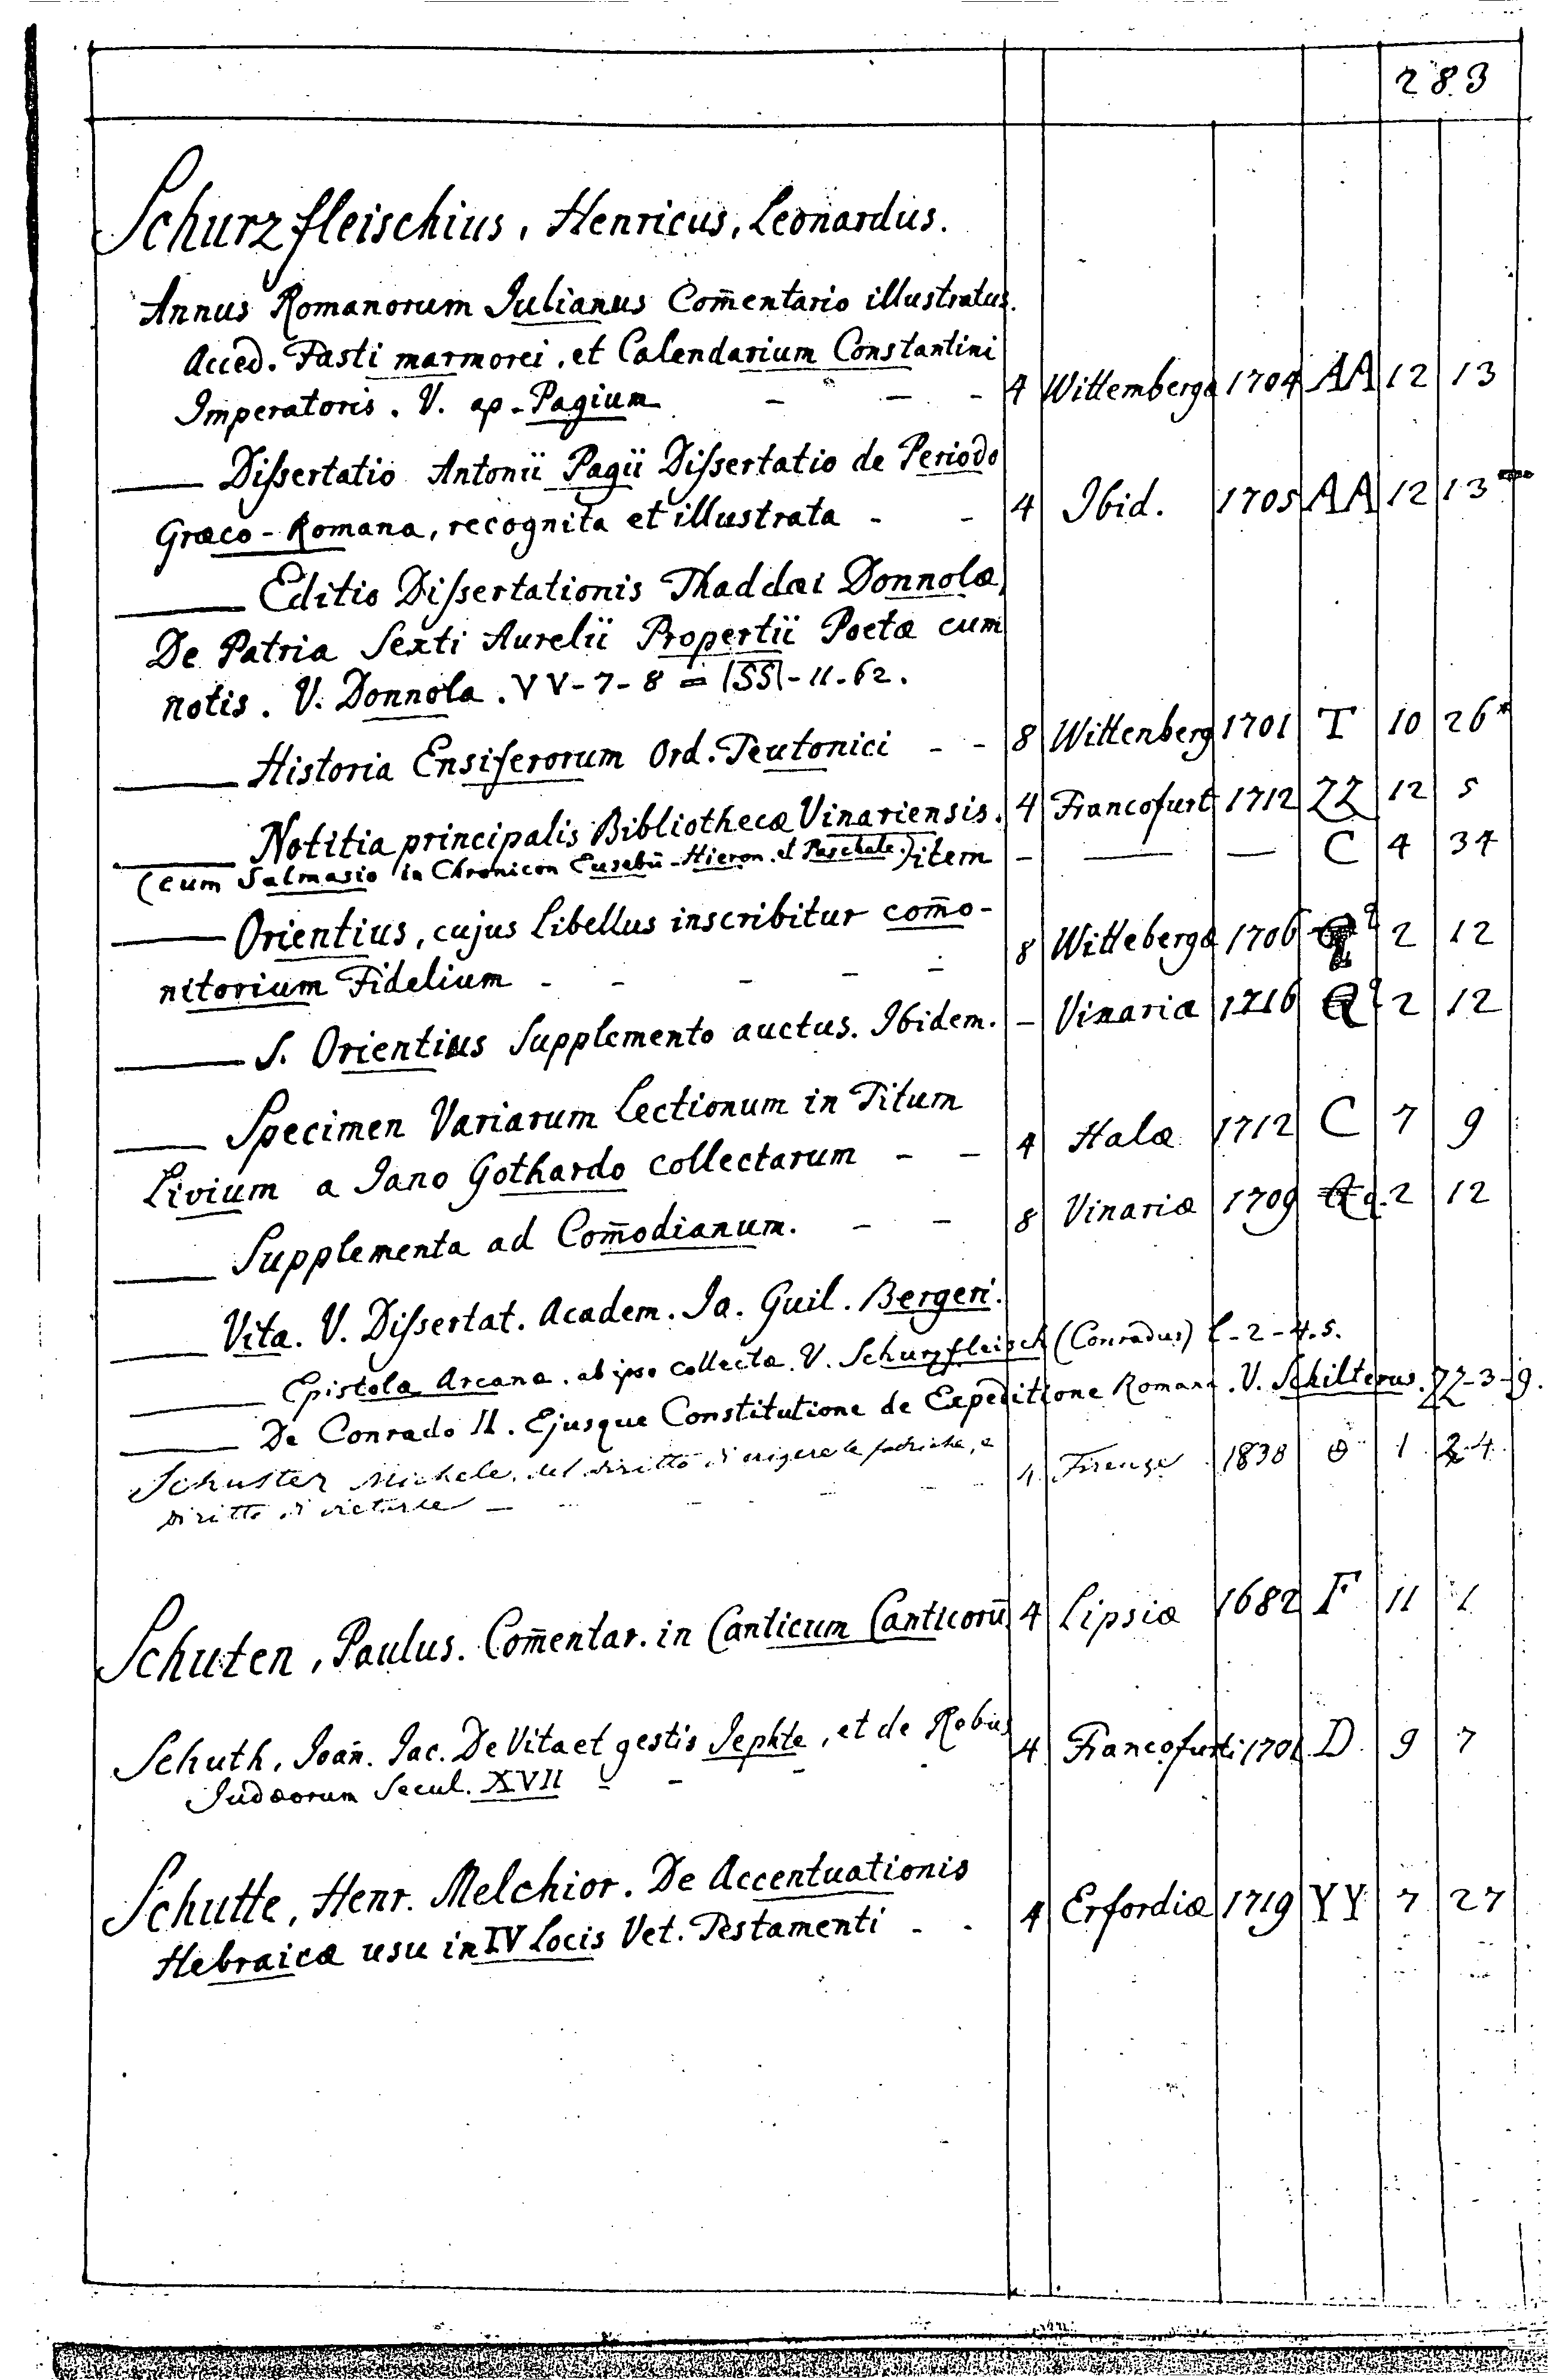 283
Schurzfleischius, Henricus, Leonardus.
Annus Romanorum Julianus Com̄entario illustratus.
Acced. Fasti marmorei, et Calendarium Constantini
Imperatoris. V. ap. Pagium - - - 4 Wittembergæ 1704 AA 12 13
—— Dissertatio Antonii Pagii Dissertatio de Periodo
Græco-Romana, recognita et illustrata - - 4 Ibid. 1705 AA 12 13
—— Editio Dissertationis Thaddæi Donnolæ,
De Patria Sexti Aurelii Propertii Poetæ cum
notis. V. Donnola. VV-7-8 = SS-11-62.
—— Historia Ensiferorum Ord. Teutonici - - 8 Wittenberg 1701 T 10 26*
—— Notitia principalis Bibliothecæ Vinariensis. 4 Francofurt 1712 ZZ 12 5
(cum Salmasio in Chronicon Eusebii-Hieron. et Paschale.) item - — — C 4 34
—— Orientius, cujus libellus inscribitur com̄o-
nitorium Fidelium - - - - - 8 Wittebergæ 1706 2 12
—— S. Orientius Supplemento auctus. Ibidem. - Vinariæ 1716 Q 2 12
—— Specimen Variarum Lectionum in Titum
Livium a Jano Gothardo collectarum - - 4 Halæ 1712 C 7 9
—— Supplementa ad Com̄odianum. - - 8 Vinariæ 1709 2 12
—— Vita. V. Dissertat. Academ. Ja. Guil. Bergeri.
—— Epistolæ Arcanæ, ab ipso collectæ. V. Schurzfleisch (Conradus) L-2-4.5.
—— De Conrado II. Ejusque Constitutione de Expeditione Romana. V. Schilterus. ZZ-3-9.
Schuster Michele, del diritto di erigere le fabbriche, e
diritto di vietarle - - - - - 4 Firenze 1838 1 24
Schuten, Paulus. Com̄entar. in Canticum Canticorū 4 Lipsiæ 1682 F 11 1
Schuth, Joan̄. Jac. De Vita et gestis Jephte, et de Rebus
Judæorum Secul. XVII - - - - 4 Francofurti 1701 D. 9 7
Schutte, Henr. Melchior. De Accentuationis
Hebraicæ usu in IV Locis Vet. Testamenti - - 4 Erfordiæ 1719 YY 7 27